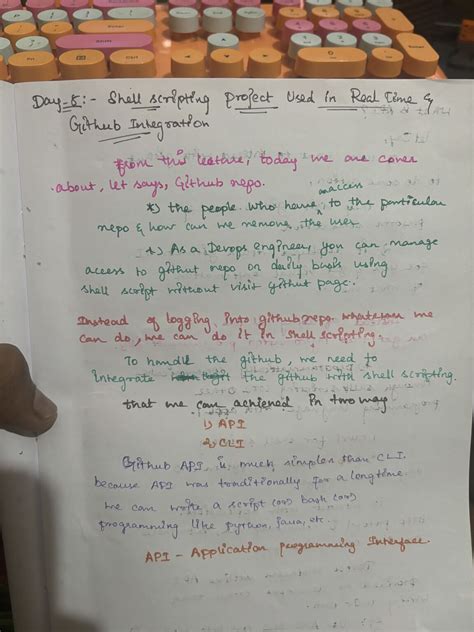 Day-5:- Shell scripting project Used in Real Time &
Github Integration
from this lecture, today we are cover
about, let says, Github repo.
*) the people who have access to the particular
repo & how can we remove the user
*) As a Devops engineer, you can manage
access to github repo on daily basis using
shell script without visit github page.
Instead of logging into github repo whatever we
can do, we can do it in shell scripting.
To handle the github, we need to
integrate the github with shell scripting.
that we can achieved in two way
1) API
2) CLI
Github API, is much simpler than CLI.
because API was traditionally for a longtime
we can write a script (or) bash (or)
programming like python, java, etc.
API - Application programming Interface.